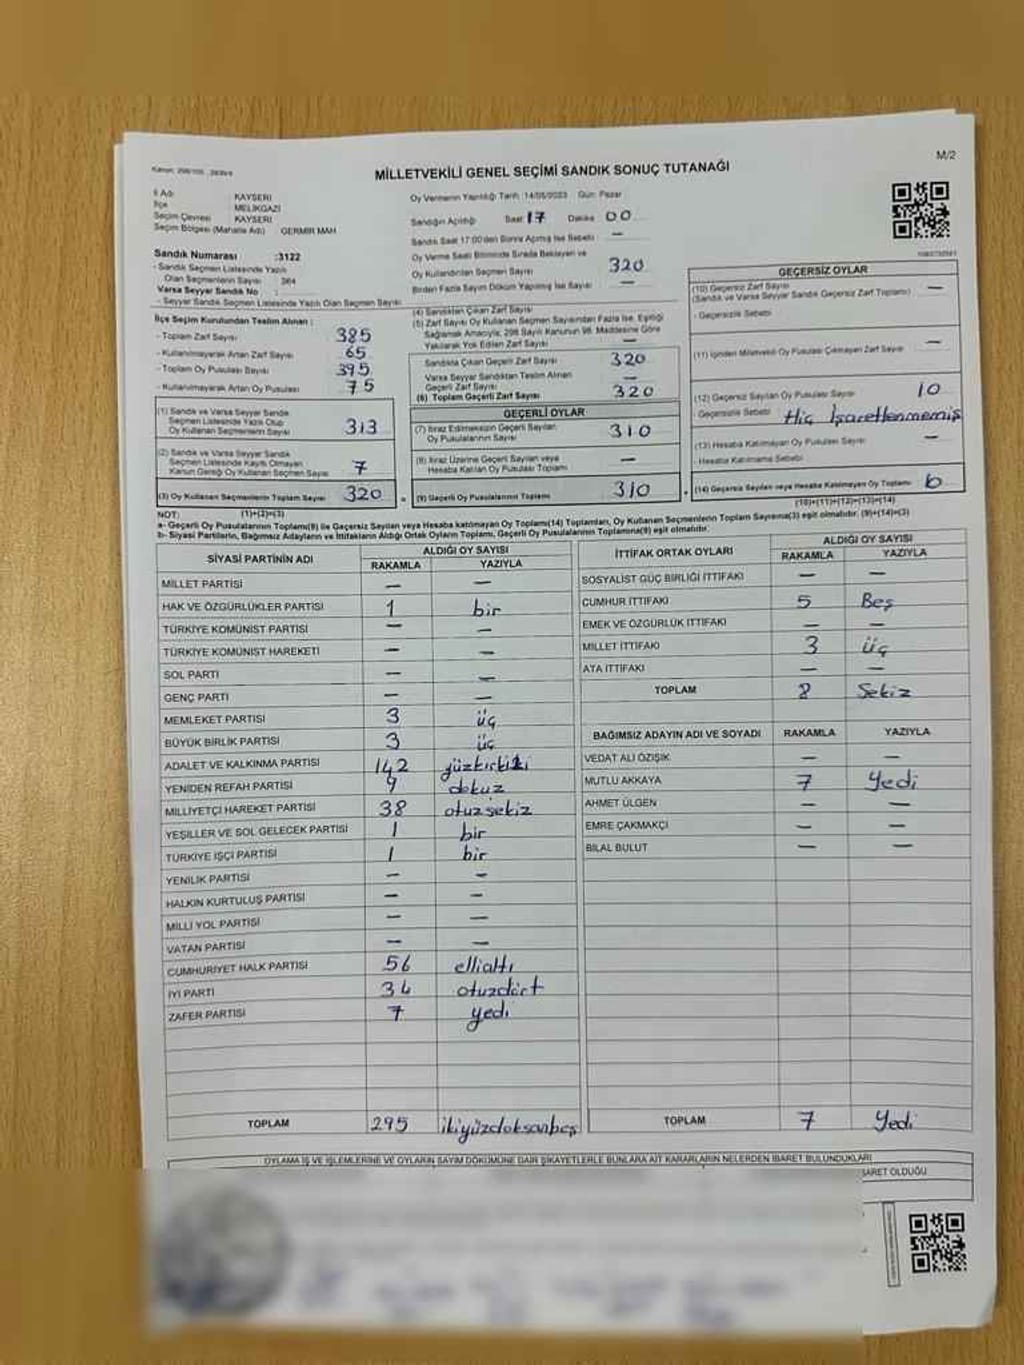 M/2
MİLLETVEKİLİ GENEL SEÇİMİ SANDIK SONUÇ TUTANAĞI
İl Adı KAYSERİ
İlçe MELİKGAZİ
Seçim Çevresi KAYSERİ
Seçim Bölgesi (Mahalle Adı) GERMİR MAH
Oy Vermenin Yapıldığı Tarih: 14/05/2023 Gün: Pazar
Sandığın Açıldığı Saat 17 Dakika 00
Sandık Saat 17:00'den Sonra Açılmış İse Sebebi —
Oy Verme Saati Bitiminde Sırada Bekleyen ve
Oy Kullandırılan Seçmen Sayısı 320
Birden Fazla Sayım Döküm Yapılmış İse Sayısı —
Sandık Numarası :3122
- Sandık Seçmen Listesinde Yazılı
Olan Seçmenlerin Sayısı : 364
Varsa Seyyar Sandık No :
- Seyyar Sandık Seçmen Listesinde Yazılı Olan Seçmen Sayısı
İlçe Seçim Kurulundan Teslim Alınan :
- Toplam Zarf Sayısı 385
- Kullanılmayarak Artan Zarf Sayısı 65
- Toplam Oy Pusulası Sayısı 395
- Kullanılmayarak Artan Oy Pusulası 75
(1) Sandık ve Varsa Seyyar Sandık
Seçmen Listesinde Yazılı Olup
Oy Kullanan Seçmenlerin Sayısı 313
(2) Sandık ve Varsa Seyyar Sandık
Seçmen Listesinde Kayıtlı Olmayan
Kanun Gereği Oy Kullanan Seçmen Sayısı 7
(3) Oy Kullanan Seçmenlerin Toplam Sayısı 320
(1)+(2)=(3)
(4) Sandıktan Çıkan Zarf Sayısı
(5) Zarf Sayısı Oy Kullanan Seçmen Sayısından Fazla İse, Eşitliği
Sağlamak Amacıyla, 298 Sayılı Kanunun 98. Maddesine Göre
Yakılarak Yok Edilen Zarf Sayısı —
Sandıkta Çıkan Geçerli Zarf Sayısı 320
Varsa Seyyar Sandıktan Teslim Alınan
Geçerli Zarf Sayısı —
(6) Toplam Geçerli Zarf Sayısı 320
GEÇERLİ OYLAR
(7) İtiraz Edilmeksizin Geçerli Sayılan
Oy Pusulalarının Sayısı 310
(8) İtiraz Üzerine Geçerli Sayılan veya
Hesaba Katılan Oy Pusulası Toplamı —
(9) Geçerli Oy Pusulalarının Toplamı 310
GEÇERSİZ OYLAR
(10) Geçersiz Zarf Sayısı —
(Sandık ve Varsa Seyyar Sandık Geçersiz Zarf Toplamı)
- Geçersizlik Sebebi
(11) İçinden Milletvekili Oy Pusulası Çıkmayan Zarf Sayısı —
(12) Geçersiz Sayılan Oy Pusulası Sayısı 10
- Geçersizlik Sebebi Hiç İşaretlenmemiş
(13) Hesaba Katılmayan Oy Pusulası Sayısı —
- Hesaba Katılmama Sebebi
(14) Geçersiz Sayılan veya Hesaba Katılmayan Oy Toplamı
(10)+(11)+(12)+(13)=(14)
NOT:
a- Geçerli Oy Pusulalarının Toplamı(9) ile Geçersiz Sayılan veya Hesaba katılmayan Oy Toplamı(14) Toplamları, Oy Kullanan Seçmenlerin Toplam Sayısına(3) eşit olmalıdır. (9)+(14)=(3)
b- Siyasi Partilerin, Bağımsız Adayların ve İttifakların Aldığı Ortak Oyların Toplamı, Geçerli Oy Pusulalarının Toplamına(9) eşit olmalıdır.
SİYASİ PARTİNİN ADI ALDIĞI OY SAYISI
RAKAMLA YAZIYLA
MİLLET PARTİSİ — —
HAK VE ÖZGÜRLÜKLER PARTİSİ 1 bir
TÜRKİYE KOMÜNİST PARTİSİ — —
TÜRKİYE KOMÜNİST HAREKETİ — —
SOL PARTİ — —
GENÇ PARTİ — —
MEMLEKET PARTİSİ 3 üç
BÜYÜK BİRLİK PARTİSİ 3 üç
ADALET VE KALKINMA PARTİSİ 142 yüzkırkiki
YENİDEN REFAH PARTİSİ 9 dokuz
MİLLİYETÇİ HAREKET PARTİSİ 38 otuzsekiz
YEŞİLLER VE SOL GELECEK PARTİSİ 1 bir
TÜRKİYE İŞÇİ PARTİSİ 1 bir
YENİLİK PARTİSİ — —
HALKIN KURTULUŞ PARTİSİ — —
MİLLİ YOL PARTİSİ — —
VATAN PARTİSİ — —
CUMHURİYET HALK PARTİSİ 56 ellialtı
İYİ PARTİ 34 otuzdört
ZAFER PARTİSİ 7 yedi
TOPLAM 295 ikiyüzdoksanbeş
İTTİFAK ORTAK OYLARI ALDIĞI OY SAYISI
RAKAMLA YAZIYLA
SOSYALİST GÜÇ BİRLİĞİ İTTİFAKI — —
CUMHUR İTTİFAKI 5 Beş
EMEK VE ÖZGÜRLÜK İTTİFAKI — —
MİLLET İTTİFAKI 3 üç
ATA İTTİFAKI — —
TOPLAM 8 Sekiz
BAĞIMSIZ ADAYIN ADI VE SOYADI RAKAMLA YAZIYLA
VEDAT ALİ ÖZIŞIK — —
MUTLU AKKAYA 7 Yedi
AHMET ÜLGEN — —
EMRE ÇAKMAKÇI — —
BİLAL BULUT — —
TOPLAM 7 Yedi
OYLAMA İŞ VE İŞLEMLERİNE VE OYLARIN SAYIM DÖKÜMÜNE DAİR ŞİKAYETLERLE BUNLARA AİT KARARLARIN NELERDEN İBARET BULUNDUKLARI
OLDUĞU